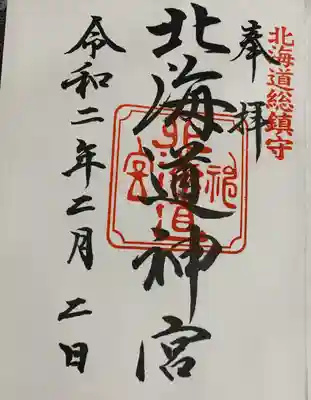 北海道総鎮守
奉拝
北海道神宮
北海道神宮
令和二年二月二日